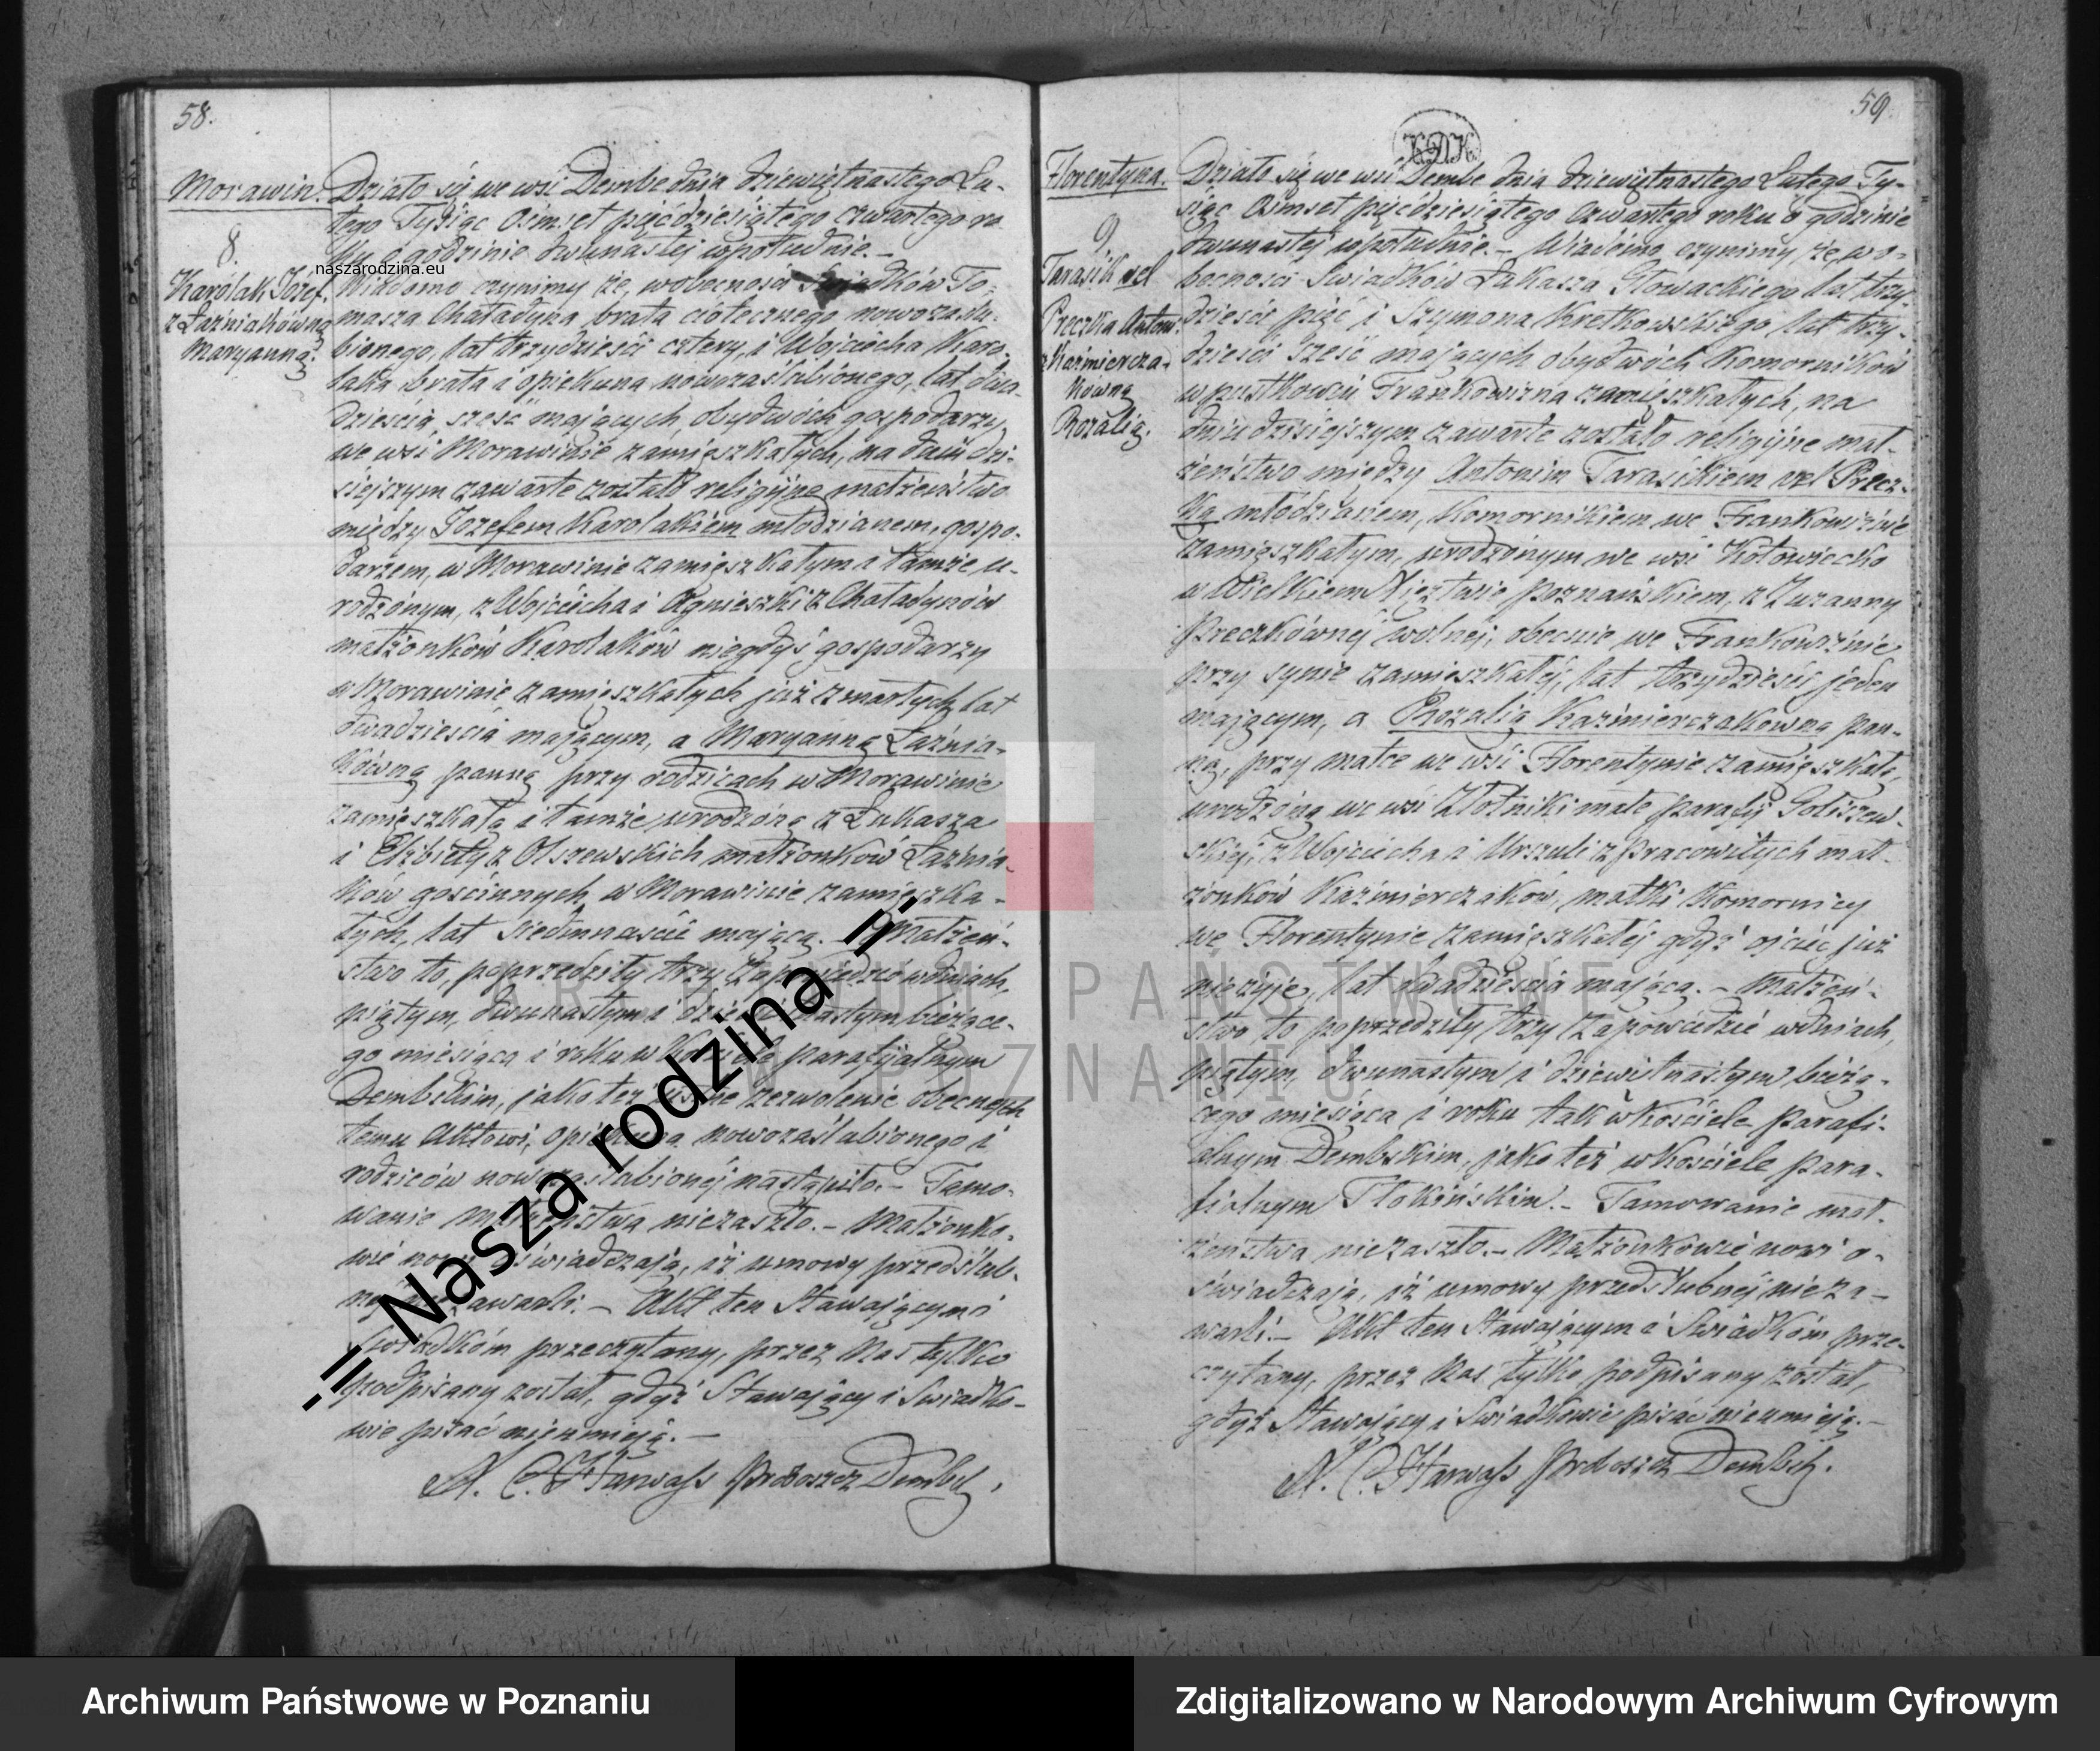 58.
Morawin.
8.
Karolak Józef
z Łaźniakówną
Maryanną.
Działo się we wsi Dembe dnia dziewiętnastego Lu-
tego Tysiąc Ośmset pięćdziesiątego czwartego ro
ku o godzinie dwunastej wpołudnie. –
naszarodzina.eu
Wiadomo czynimy że, wobecności Świadków To-
masza Chaładyna brata ciotecznego nowozaślu-
bionego, lat trzydzieści cztery, i Wojciecha Karo-
laka brata i opiekuna nowozaślubionego, lat dwa-
dzieścia sześć mających, obydwóch gospodarzy
we wsi Morawinie zamięszkałych, na dniu dzi-
siejszym zawarte zostało religijne małżeństwo
między Józefem Karolakiem młodzianem, gospo-
darzem, w Morawinie zamięszkałym i tamże u-
rodzonym, z Wojciecha i Agnieszki z Chaładynów
małżonków Karolaków niegdyś gospodarzy
w Morawinie zamięszkałych już zmarłych lat
dwadzieścia mającym, a Maryanną Łaźnia-
kówną panną przy rodzicach w Morawinie
zamięszkałą i tamże urodzoną z Łukasza
i Elżbiety z Olszewskich małżonków Łaźnia-
ków gościnnych w Morawinie zamięszka-
łych, lat siedmnaście mającą. – Małżeń-
stwo to, poprzedziły trzy zapowiedzie w dniach,
piątym, dwunastym i dziewiętnastym bieżące-
go miesiąca i roku w Kościele parafijalnym
Dembskim, jako też ustne zezwolenie obecnych
temu Aktowi, opiekuna nowozaślubionego i
rodziców nowozaślubionej nastąpiło. – Tamo-
wanie małżeństwa niezaszło. – Małżonko-
wie nowi oświadczają, iż umowy przedślub-
nej niezawarli. – Akt ten Stawającym i
Świadkom przeczytany, przez Nas tylko
podpisany został, gdyż Stawający i Świadko-
wie pisać nieumieją. –
X. C. Harwass Proboszcz Dembsk.
59
KDK
Florentyna.
9.
Tarasik vel
Preczka Antoni
z Kaźmiercza-
kówną
Rozalią.
Działo się we wsi Dembe dnia dziewiętnastego Lutego Ty-
siąc Ośmset pięćdziesiątego czwartego roku o godzinie
dwunastej wpołudnie. – Wiadomo czynimy, że, wo-
becności Świadków Łukasza Głowackiego lat trzy-
dzieści pięć i Szymona Kretkowskiego, lat trzy-
dzieści sześć mających obydwóch Komorników
w pustkowiu Frankowizna zamięszkałych, na
dniu dzisiejszym zawarte zostało religijne mał-
żeństwo między Antonim Tarasikiem vel Precz-
ką młodzianem, Komornikiem we Frankowiźnie
zamięszkałym, urodzonym we wsi Kotowiecko
w Wielkiem Xięztwie Poznańskiem, z Zuzanny
Preczkównej wolnej, obecnie we Frankowiźnie
przy synie zamieszkałej, lat trzydzieści jeden
mającym, a Rozalią Kaźmierczakówną pan-
ną, przy matce we wsi Florentynie zamięszkałą,
urodzoną we wsi Złotniki małe parafij Goliszew-
skiej, z Wojciecha i Urszuli z pracowitych mał-
żonków Kaźmierczaków, matki Komornicy
we Florentynie zamięszkałej gdyż ojciec już
nieżyje, lat dwadzieścia mającą. – Małżeń-
stwo to poprzedziły trzy zapowiedzie wdniach,
piątym, dwunastym i dziewiętnastym bieżą-
cego miesiąca i roku tak w kościele parafi-
alnym Dembskim, jako też w kościele para-
fialnym Tłokińskim. – Tamowanie mał-
żeństwa niezaszło. – Małżonkowie nowi o-
świadczają, iż umowy przedślubnej nieza-
warli. – Akt ten Stawającym i Świadkom prze-
czytany, przez Nas tylko podpisany został,
gdyż Stawający i Świadkowie pisać nieumieją. –
X. C. Harwass Proboszcz Dembsk.
ARCHIWUM PAŃSTWOWE
W POZNANIU
.:|| Nasza rodzina ||:.
Archiwum Państwowe w Poznaniu
Zdigitalizowano w Narodowym Archiwum Cyfrowym